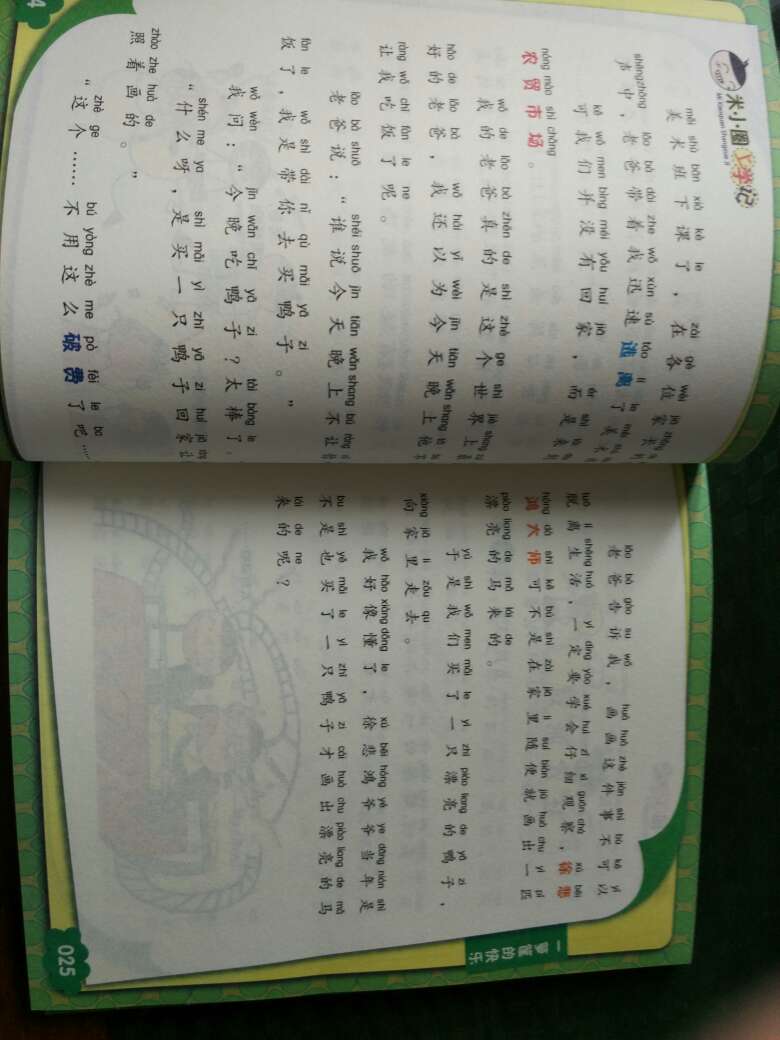 米小圈上学记
měi shù bān xià kè le zài gè wèi jiā zhǎng
美术班下课了，在各位家长
shēng zhōng lǎo bà dài zhe wǒ xùn sù táo lí le měi
声中，老爸带着我迅速逃离了美术
kě wǒ men bìng méi yǒu huí jiā ér shì
可我们并没有回家，而是来
nóng mào shì chǎng
农贸市场。
wǒ de lǎo bà zhēn de shì zhè ge shì jiè shang
我的老爸真的是这个世界上
hǎo de lǎo bà wǒ hái yǐ wéi jīn tiān wǎn shang
好的老爸，我还以为今天晚上他
ràng wǒ chī fàn le ne
让我吃饭了呢。
lǎo bà shuō shéi shuō jīn tiān wǎn shang bú ràng
老爸说：“谁说今天晚上不让
fàn le wǒ shì dài nǐ qù mǎi yā zi
饭了，我是带你去买鸭子。”
wǒ wèn jīn wǎn chī yā zi tài bàng le
我问：“今晚吃鸭子？太棒了
shén me ya shì mǎi yì zhī yā zi huí jiā
“什么呀，是买一只鸭子回家让
zhào zhe huà de
照着画的。”
zhè ge bú yòng zhè me pò fèi le ba
“这个……不用这么破费了吧……
lǎo bà gào su wǒ huà huà zhè jiàn shì bù kě yǐ
老爸告诉我，画画这件事不可以
tuō lí shēng huó yí dìng yào xué huì zǐ xì guān chá xú bēi
脱离生活，一定要学会仔细观察，徐悲
hóng dà shī kě bú shì zài jiā li suí biàn jiù huà chu yì pǐ
鸿大师可不是在家里随便就画出一匹
piào liang de mǎ lái de
漂亮的马来的。
yú shì wǒ men mǎi le yì zhī piào liang de yā zi
于是我们买了一只漂亮的鸭子，
xiàng jiā li zǒu qu
向家里走去。
wǒ hǎo xiàng dǒng le xú bēi hóng yé ye dāng nián shì
我好像懂了，徐悲鸿爷爷当年是
bu shì yě mǎi le yì zhī yā zi cái huà chu piào liang de mǎ
不是也买了一只鸭子才画出漂亮的马
lái de ne
来的呢？
一箩筐的快乐
025